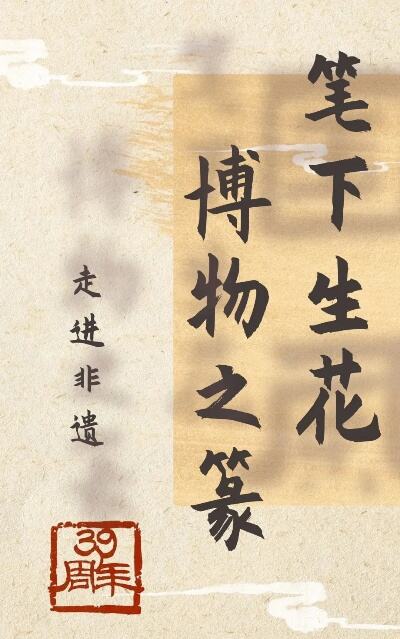 笔下生花
博物之篆
走进非遗
39
周年